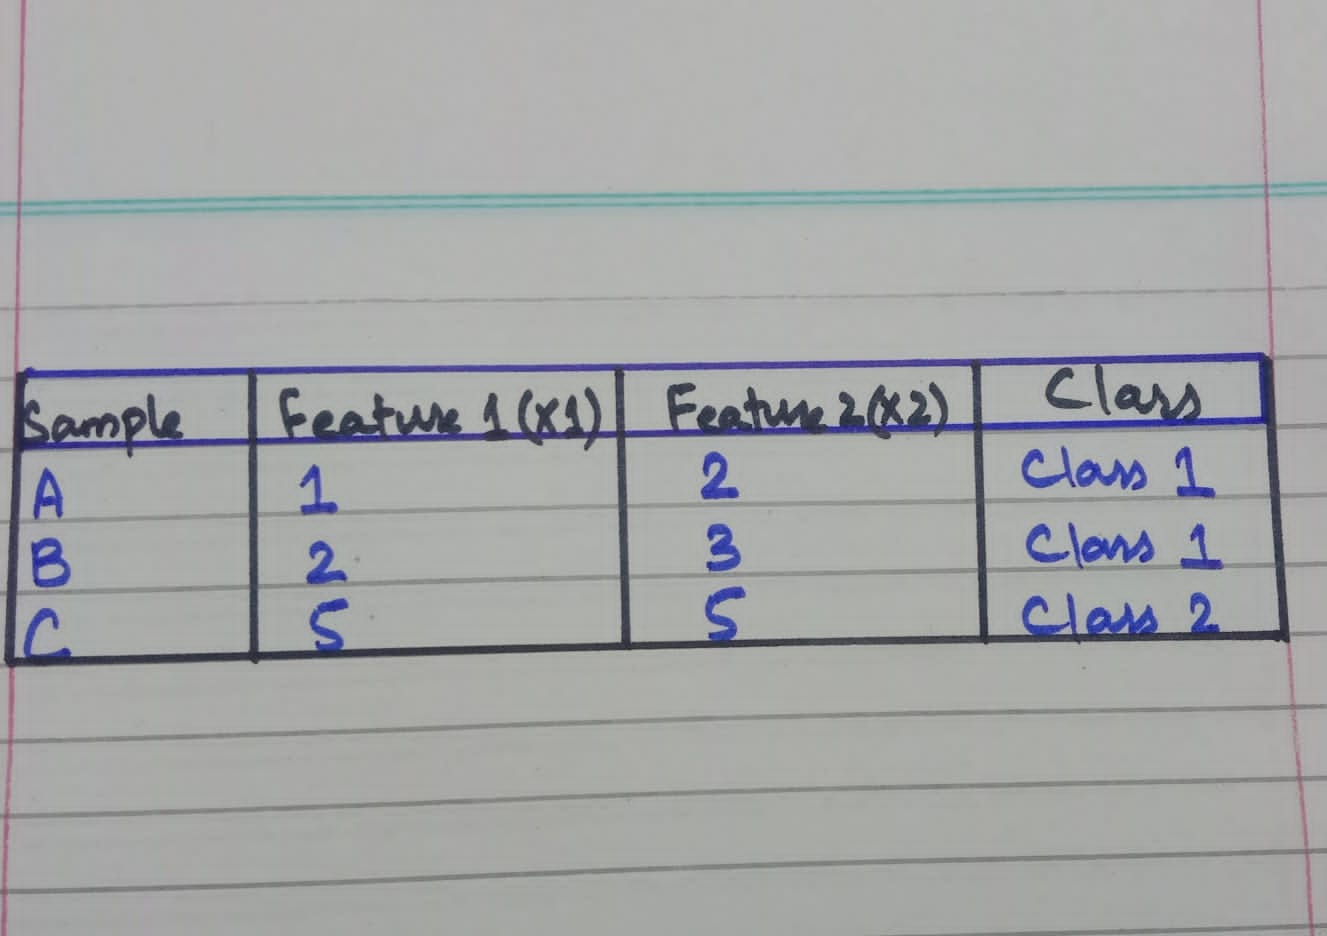 Sample Feature 1 (X1) Feature 2 (X2) Class
A 1 2 Class 1
B 2 3 Class 1
C 5 5 Class 2